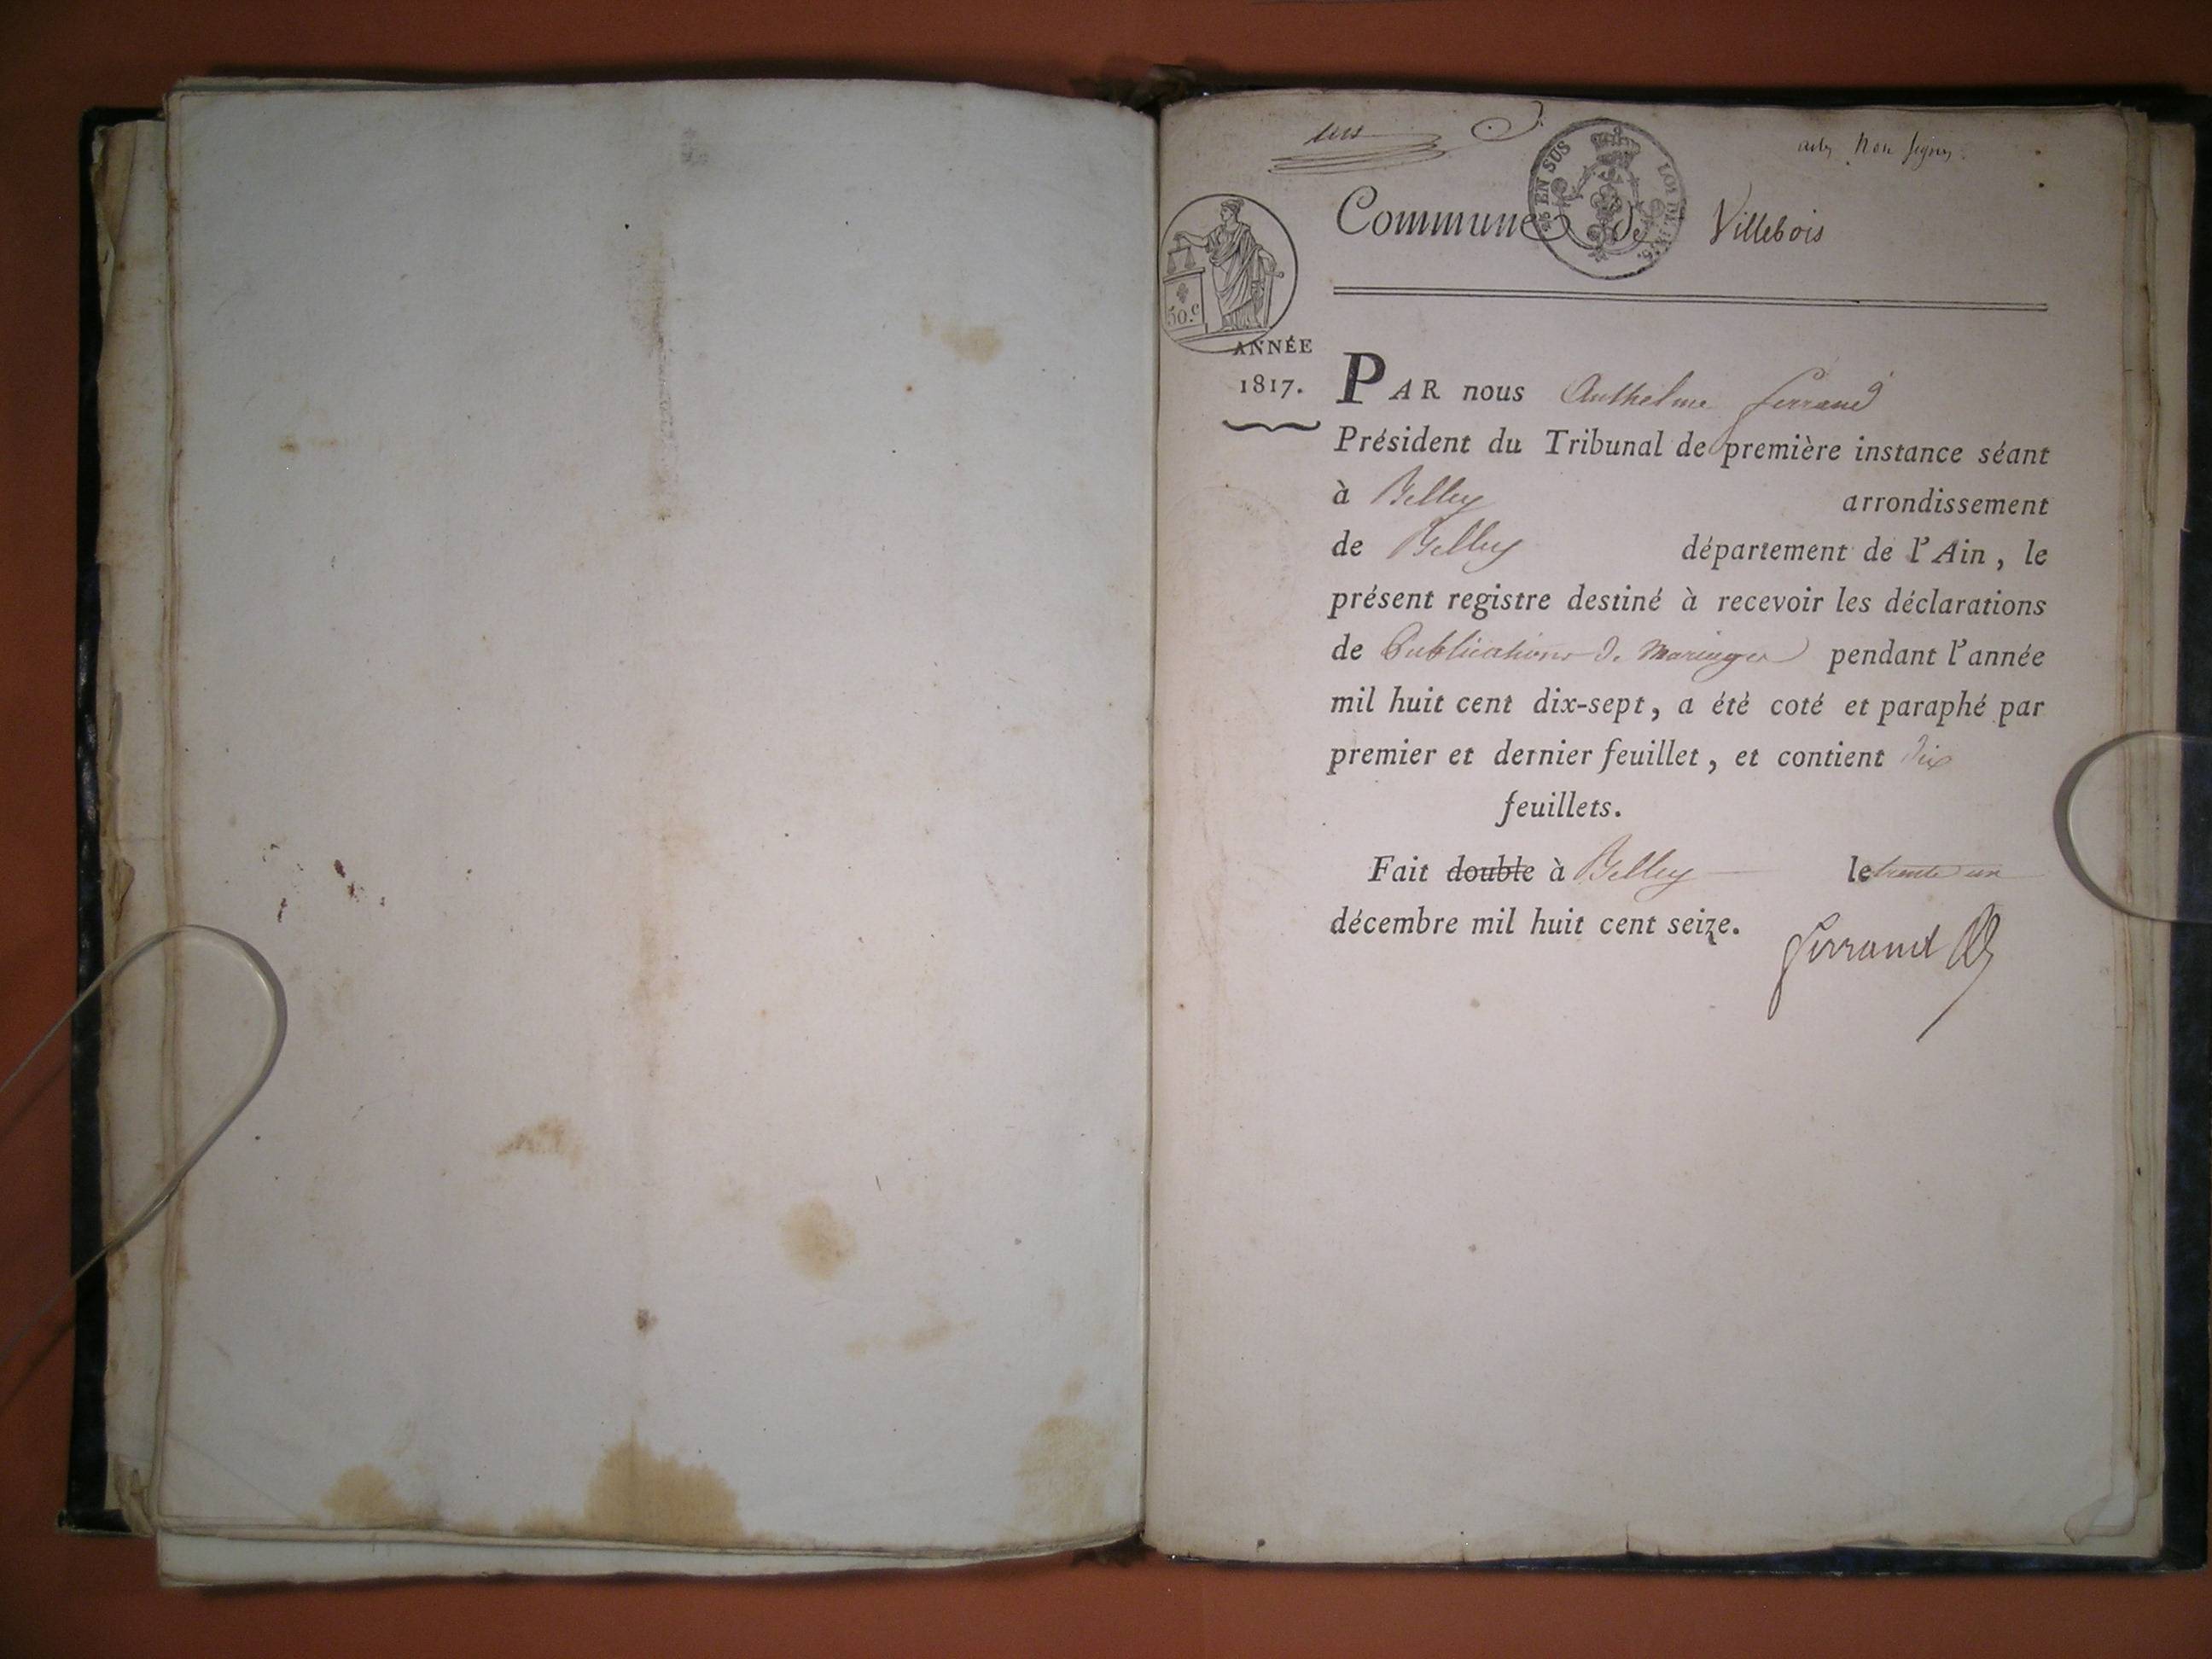 actes non signés
EN SUS LOI DE 1816.
Commune de Villebois
50.c
ANNÉE
1817.
PAR nous Anthelme Ferrand
Président du Tribunal de première instance séant
à Belley arrondissement
de Belley département de l'Ain, le
présent registre destiné à recevoir les déclarations
de Publications de Mariages pendant l'année
mil huit cent dix-sept, a été coté et paraphé par
premier et dernier feuillet, et contient dix
feuillets.
Fait double à Belley le trente un
décembre mil huit cent seize.
Ferrand